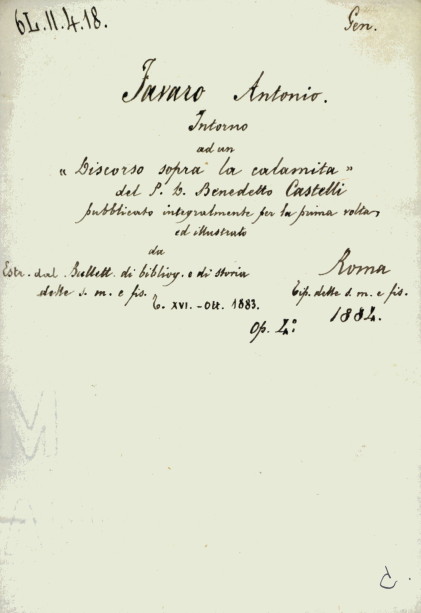 6L.11.4.18.
Gen.
Favaro Antonio.
Intorno
ad un
"Discorso sopra la calamita"
del P. D. Benedetto Castelli
pubblicato integralmente per la prima volta,
ed illustrato
da
Estr. dal Bullett. di bibliog. e di storia
delle s. m. e fis.
T. XVI. - Ott. 1883.
Roma
Tip. delle s. m. e fis.
1884.
Op. 4º